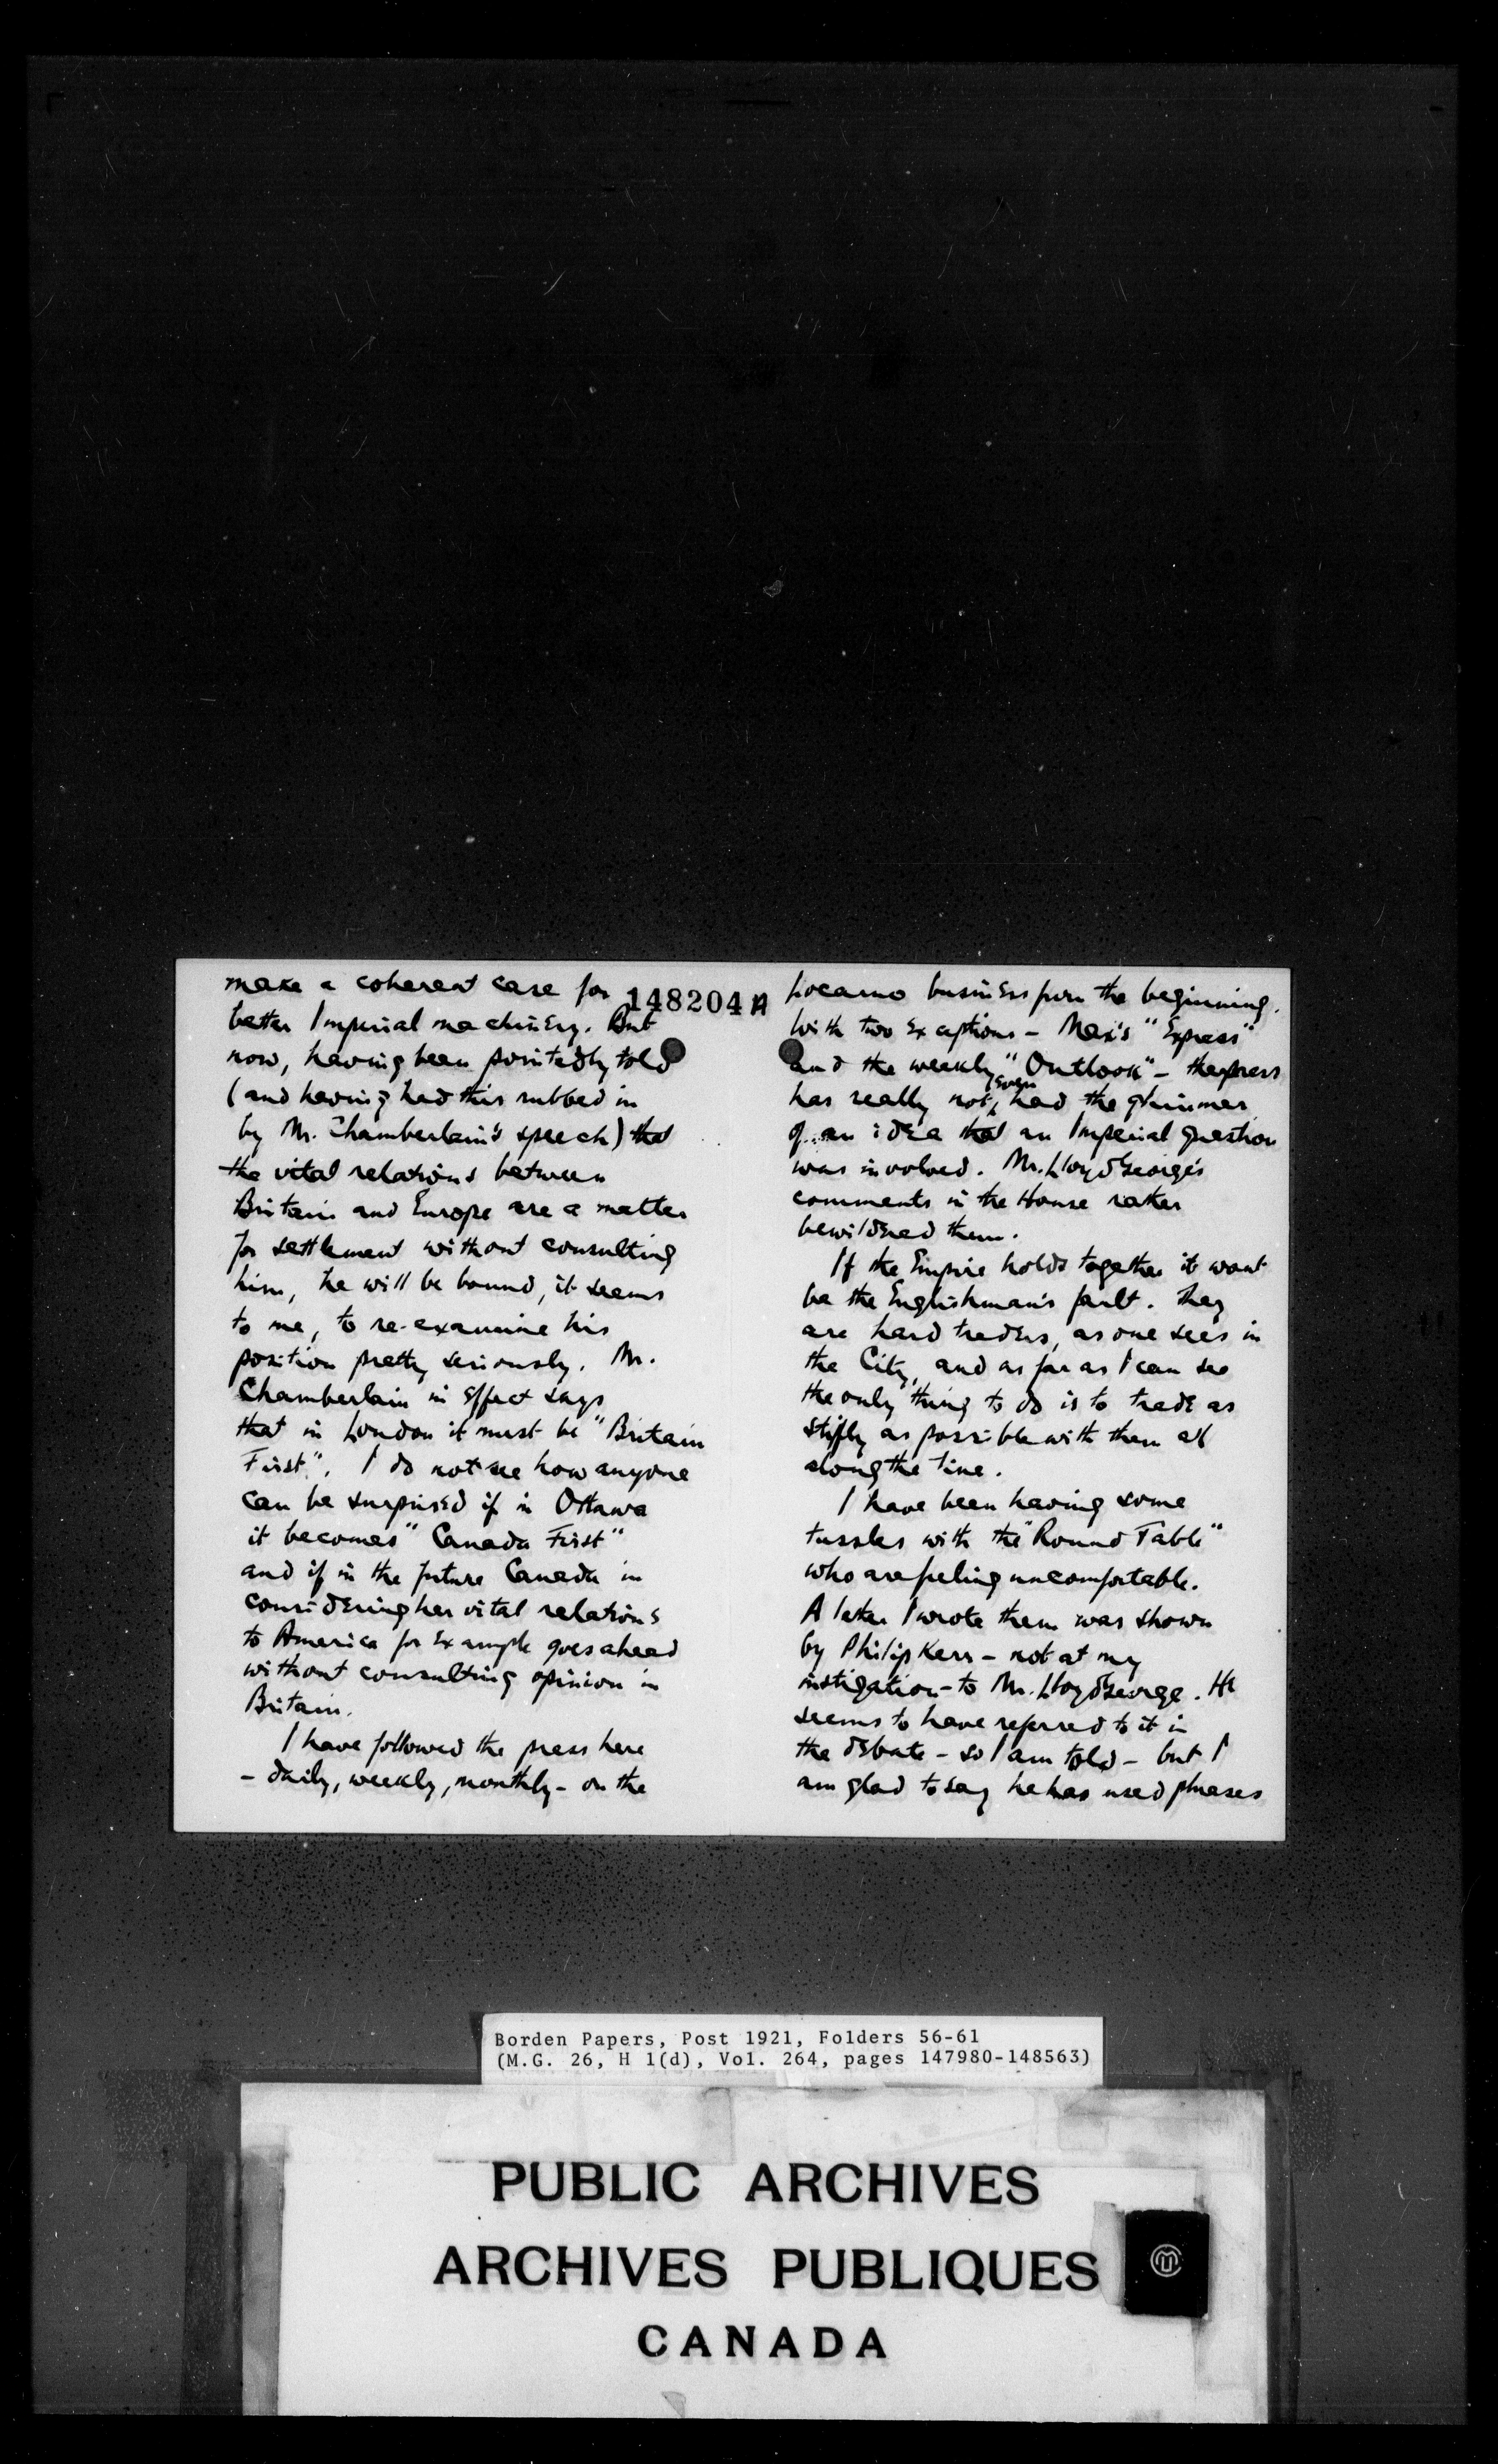 make a coherent case for
better Imperial machinery. But
now, having been pointedly told
(and having had this rubbed in
by Mr. Chamberlain's speech) that
the vital relations between
Britain and Europe are a matter
for settlement without consulting
him, he will be bound, it seems
to me, to re-examine his
position pretty seriously. Mr.
Chamberlain in effect says
that in London it must be "Britain
First". I do not see how anyone
can be surprised if in Ottawa
it becomes "Canada First"
and if in the future Canada in
considering her vital relations
to America for example goes ahead
without consulting opinion in
Britain.
I have followed the press here
- daily, weekly, monthly - on the
148204A
Locarno business from the beginning.
With two exceptions - Max's "Express"
and the weekly "Outlook" - the press
has really not even had the glimmer
of an idea that an Imperial question
was involved. Mr. Lloyd George's
comments in the House rather
bewildered them.
If the Empire holds together it wont
be the Englishman's fault. They
are hard traders, as one sees in
the City, and as far as I can see
the only thing to do is to trade as
stiffly as possible with them all
along the line.
I have been having some
tussles with the "Round Table"
who are feeling uncomfortable.
A letter I wrote them was shown
by Philip Kerr - not at my
instigation - to Mr. Lloyd George. He
seems to have referred to it in
the debate - so I am told - but I
am glad to say he has used phrases
Borden Papers, Post 1921, Folders 56-61
(M.G. 26, H 1(d), Vol. 264, pages 147980-148563)
PUBLIC ARCHIVES
ARCHIVES PUBLIQUES
CANADA